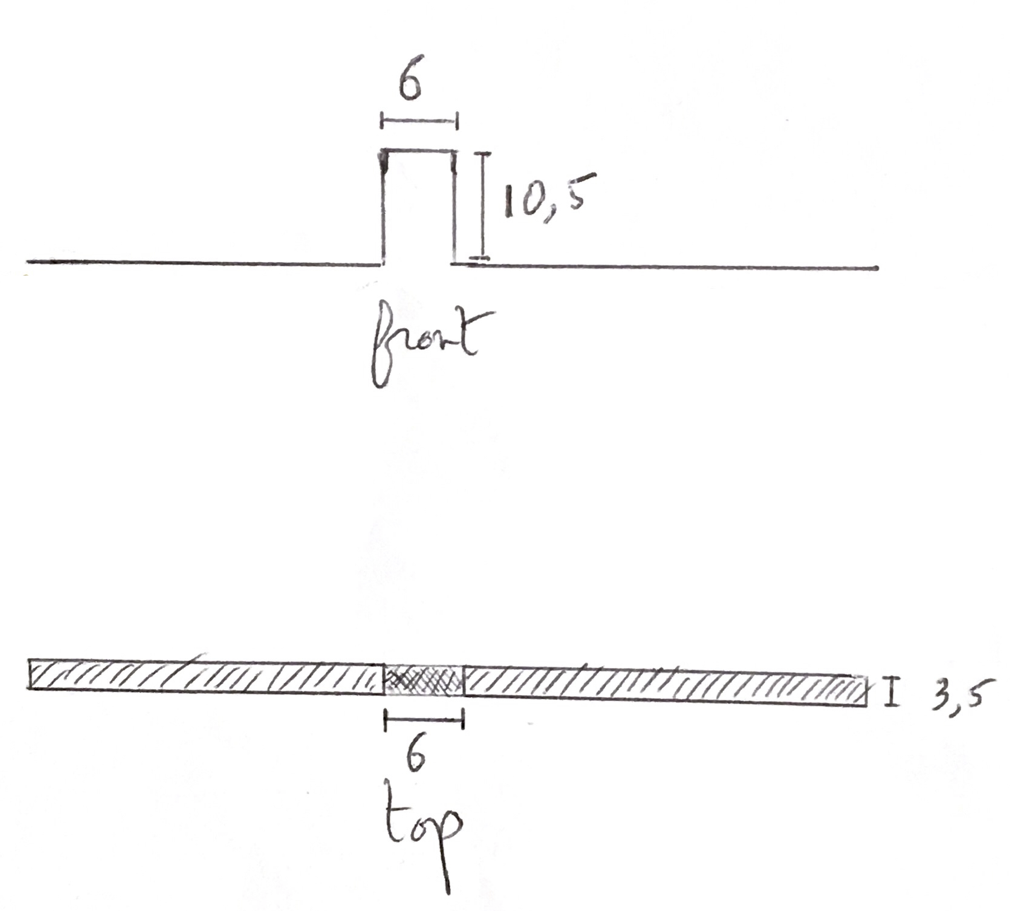 6
10,5
front
3,5
6
top